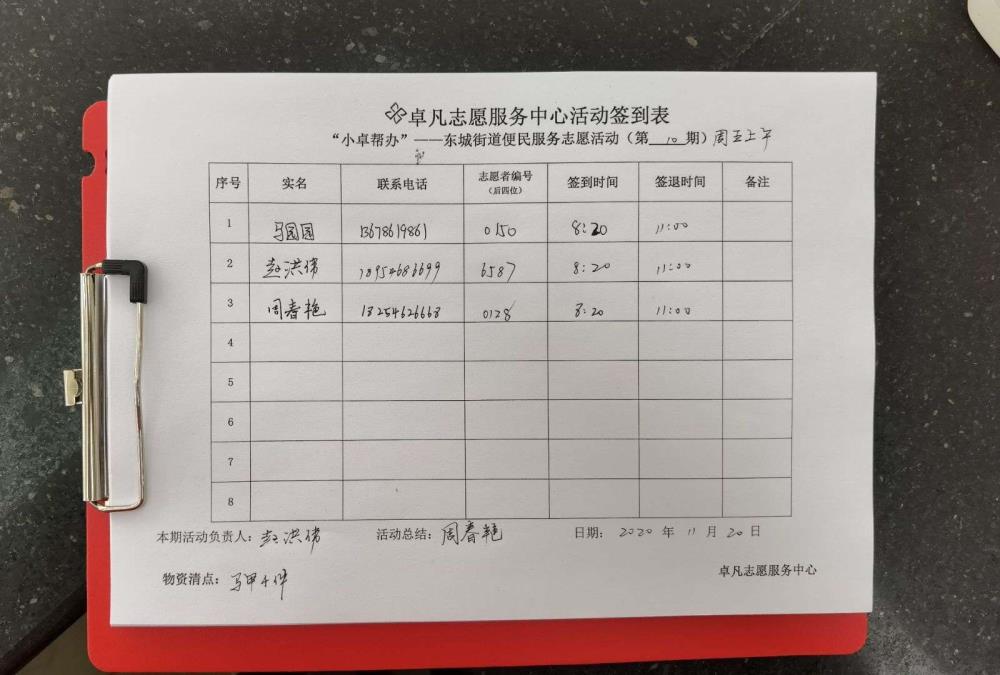 卓凡志愿服务中心活动签到表
“小卓帮办”——东城街道便民服务志愿活动（第 10 期）周五上午
序号 实名 联系电话 志愿者编号（后四位） 签到时间 签退时间 备注
1 马园园 13678619861 0150 8:20 11:00
2 赵洪伟 18954686699 6587 8:20 11:00
3 周春艳 13254626668 0128 8:20 11:00
4
5
6
7
8
本期活动负责人：赵洪伟 活动总结：周春艳 日期：2020 年 11 月 20 日
物资清点：马甲4件 卓凡志愿服务中心